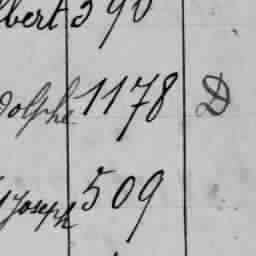 lbert 390
dolphe 1178 D
Joseph 509